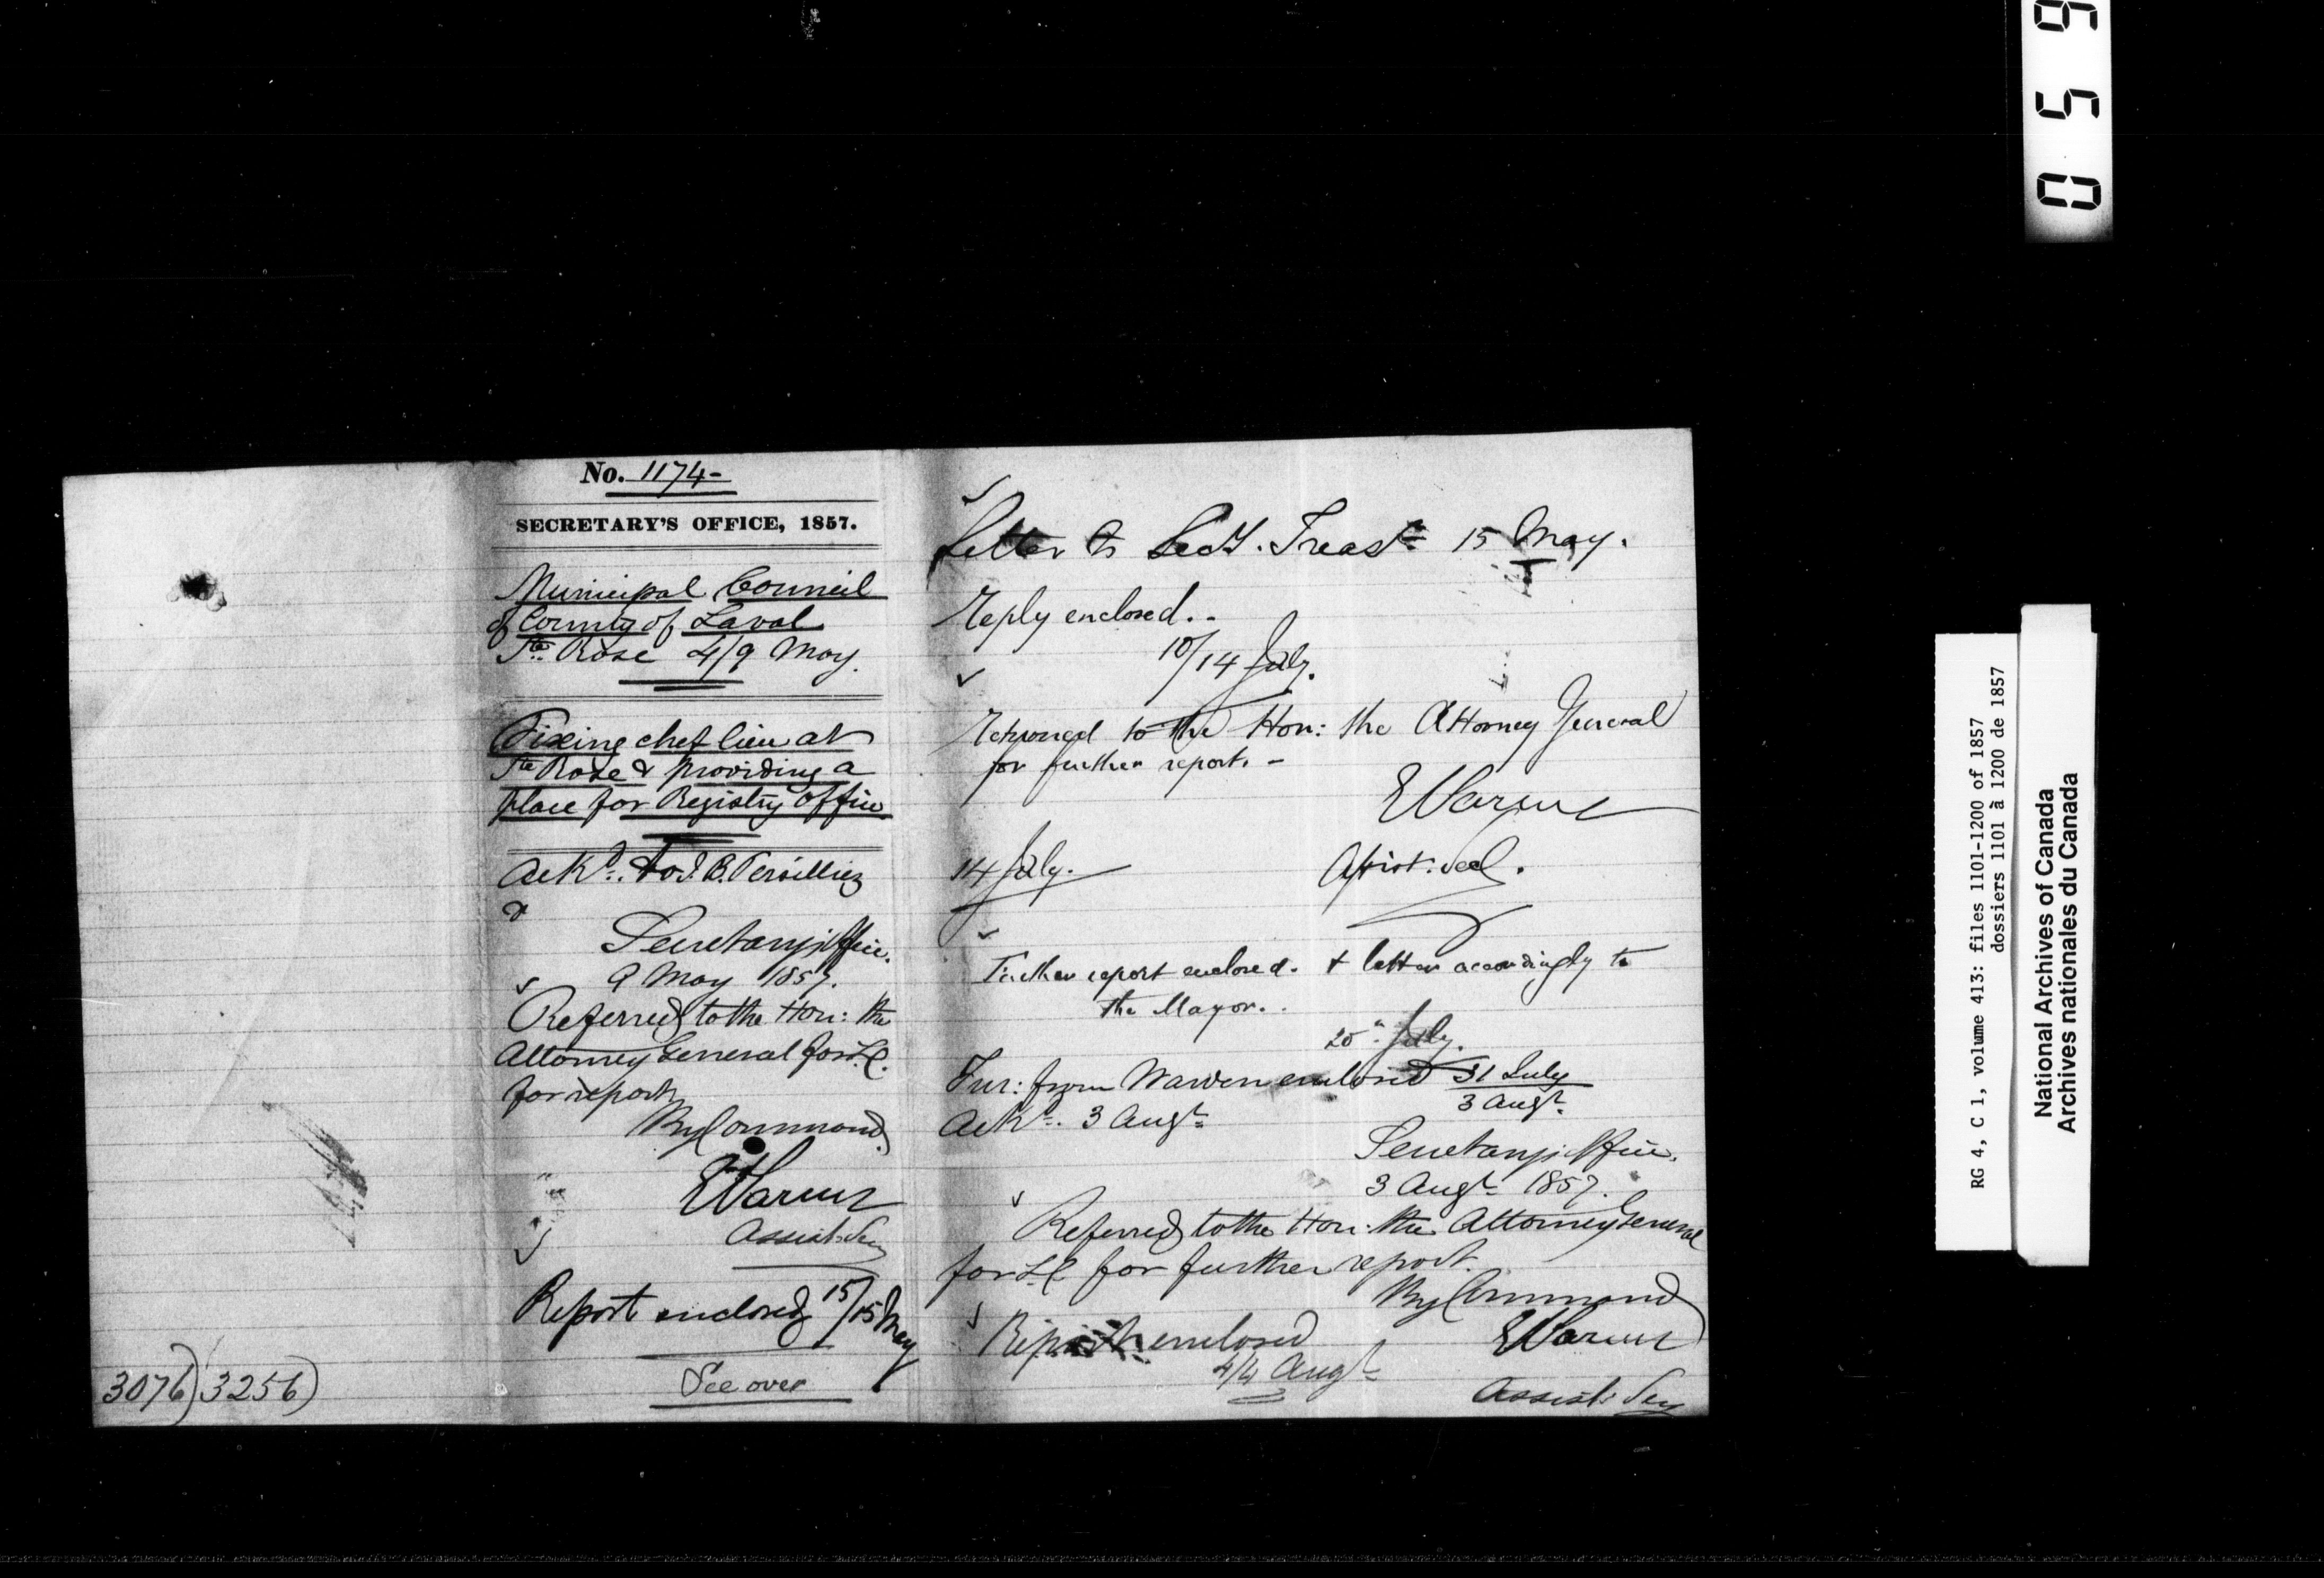 No. 1174-
SECRETARY'S OFFICE, 1857.
Municipal Council
of County of Laval
Ste Rose 4/9 May.
Fixing chef lieu at
Ste Rose & providing a
place for Registry Office
Ackd. to J. B.
&
Secretary's Office.
9 May 1857.
Referred to the Hon: the
Attorney General for L.C.
for report
By Command
Assist: Secy
Report enclosed 15/15 May
See over
3076) 3256)
Letter to Secy. Treasr 15 May.
Reply enclosed..
10/14 July.
Returned to the Hon: the Attorney General
for further report. -
14 July.
Assist. Sec.
Further report enclosed. + letter accordingly to
the Mayor..
20th July.
Fur: from Warden enclosed 31 July
3 Augt.
Ackd. 3 Augt
Secretary's Office.
3 Augt 1857.
Referred to the Hon: the Attorney General
for L.C. for further report.
By Command
Report enclosed
4/4 Augt
Assist: Secy
0 5 9
RG 4, C 1, volume 413: files 1101-1200 of 1857
dossiers 1101 à 1200 de 1857
National Archives of Canada
Archives nationales du Canada